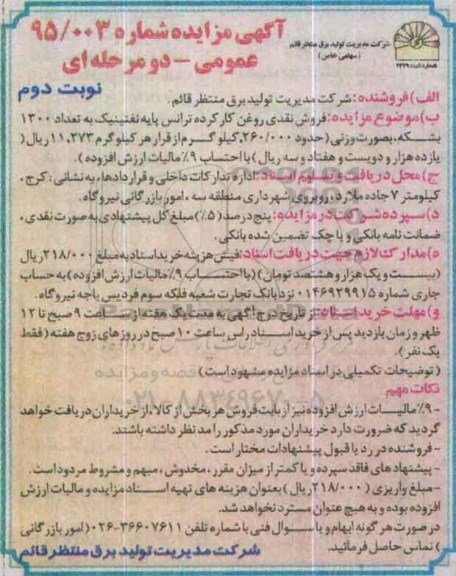 شرکت مدیریت تولید برق منتظر قائم
(سهامی خاص)
آگهی مزایده شماره ۹۵/۰۰۳
عمومی - دو مرحله ای
نوبت دوم
الف) فروشنده: شرکت مدیریت تولید برق منتظر قائم.
ب) موضوع مزایده: فروش نقدی روغن کارکرده ترانس پایه نفتینیک به تعداد ۱۳۰۰
بشکه، بصورت وزنی (حدود ۲۶۰/۰۰۰ کیلوگرم از قرار هر کیلوگرم ۱۱,۲۷۳ ریال (
یازده هزار و دویست و هفتاد و سه ریال) با احتساب ۹٪ مالیات ارزش افزوده).
ج) محل دریافت و تسلیم اسناد: اداره تدارکات داخلی و قراردادها، به نشانی: کرج،
کیلومتر ۷ جاده ملارد، روبروی شهرداری منطقه سه، امور بازرگانی نیروگاه.
د) سپرده شرکت در مزایده: پنج درصد (۵٪) مبلغ کل پیشنهادی به صورت نقدی،
ضمانت نامه بانکی و یا چک تضمین شده بانکی.
ه) مدارک لازم جهت دریافت اسناد: فیش هزینه خرید اسناد به مبلغ ۲۱۸/۰۰۰ ریال
(بیست و یک هزار و هشتصد تومان) (با احتساب ۹٪ مالیات ارزش افزوده) به حساب
جاری شماره ۰۱۴۶۹۲۹۹۱۵ نزد بانک تجارت شعبه فلکه سوم فردیس باجه نیروگاه.
و) مهلت خرید اسناد: از تاریخ درج آگهی به مدت یک هفته از ساعت ۹ صبح تا ۱۲
ظهر و زمان بازدید پس از خرید اسناد راس ساعت ۱۰ صبح در روزهای زوج هفته (فقط
یک نفر).
(توضیحات تکمیلی در اسناد مزایده مشهود است)
نکات مهم
- ۹٪ مالیات ارزش افزوده نیز از بابت فروش هر بخش از کالا، از خریداران دریافت خواهد
گردید که ضرورت دارد خریداران مورد مذکور را مد نظر داشته باشند.
- فروشنده در رد یا قبول پیشنهادات مختار است.
- پیشنهادهای فاقد سپرده و یا کمتر از میزان مقرر، مخدوش، مبهم و مشروط مردود است.
- مبلغ واریزی (۲۱۸/۰۰۰ ریال) بعنوان هزینه های تهیه اسناد مزایده و مالیات ارزش
افزوده بوده و به هیچ عنوان مسترد نخواهد شد.
در صورت هر گونه ابهام و یا سوال فنی با شماره تلفن ۳۶۶۰۷۶۱۱-۰۲۶ (امور بازرگانی
) تماس حاصل فرمائید.
شرکت مدیریت تولید برق منتظر قائم
۰۲۱-۸۸۳۴۹۶۷۰-۵